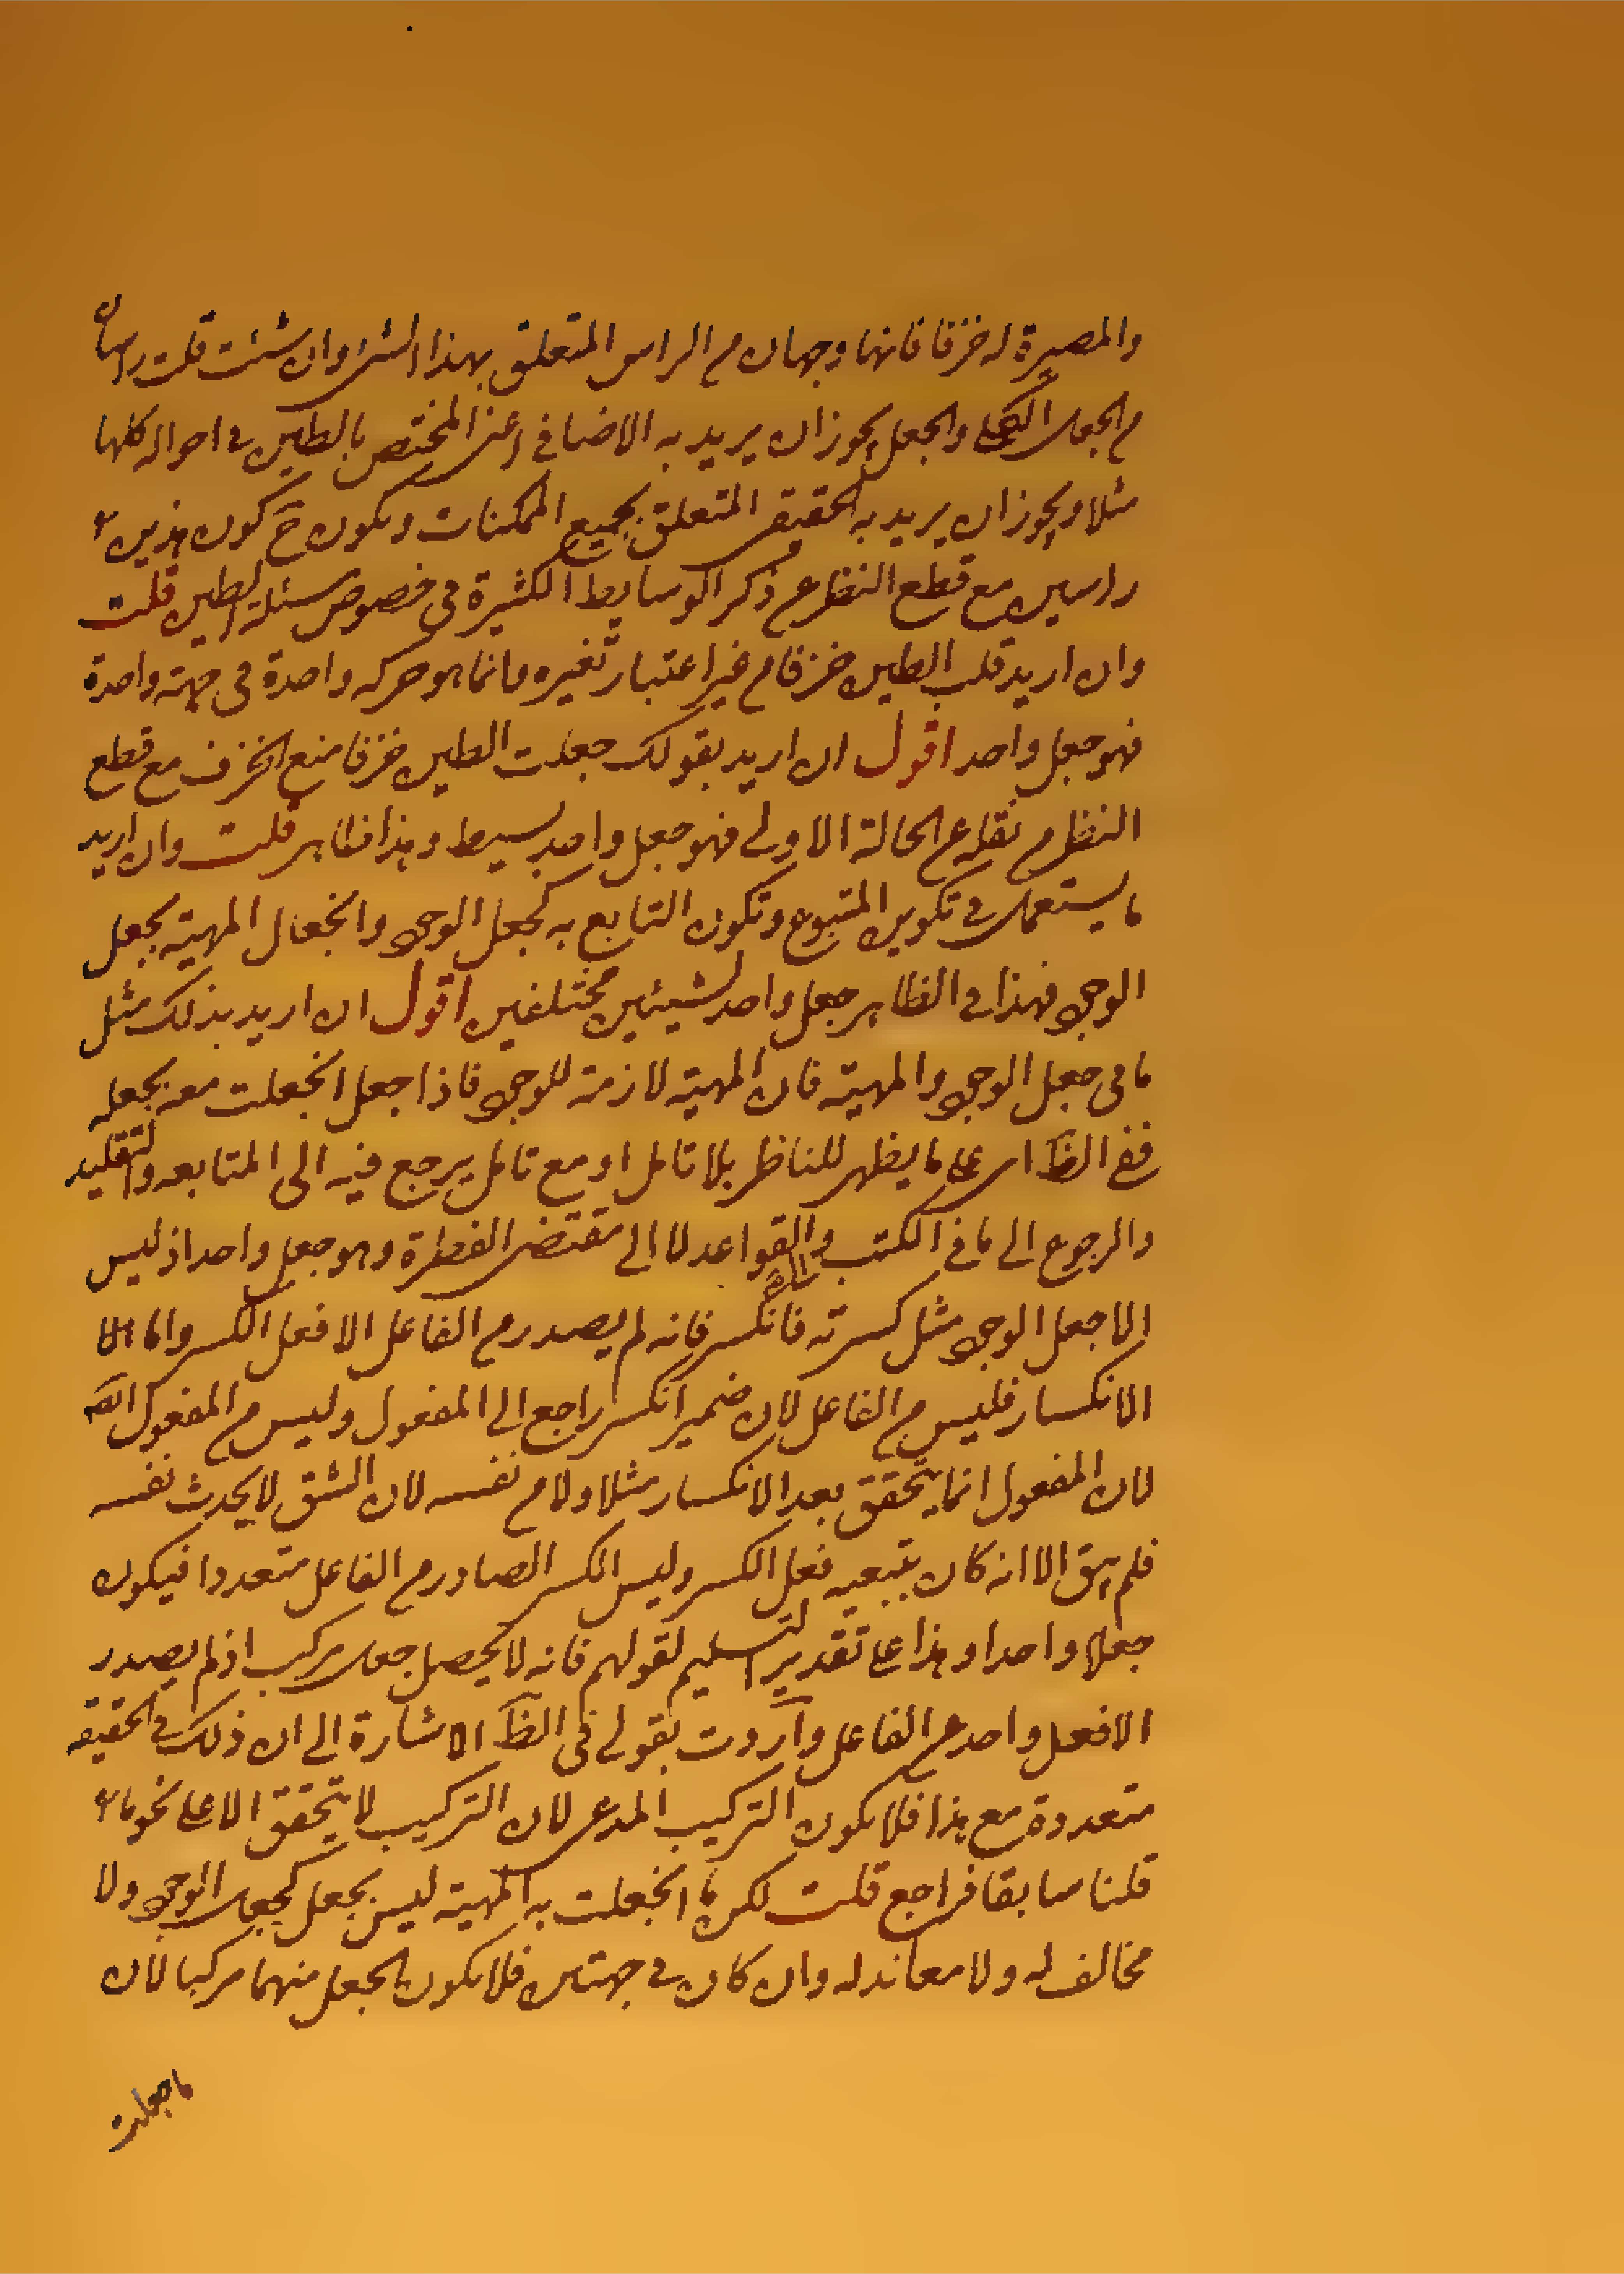 والمصيرة له خزفا فانهما وجهان من الراس المتعلق بهذا الشئ وان شئت قلت راسان
من الجعل الكلي والجعل يجوز ان يريد به الاضافي اعني المختص بالطين في احواله كلها
مثلا ويجوز ان يريد به الحقيقي المتعلق بجميع الممكنات ويكون ح كون هذين
راسين مع قطع النظر عن ذكر الوسايط الكثيرة في خصوص مسئلة الطين قلت
وان اريد قلب الطين خزفا من غير اعتبار تغيره وانما هو حركه واحدة في جهة واحدة
فهو جعل واحد اقول ان اريد بقولك جعلت الطين خزفا صنع الخزف مع قطع
النظر من نقله عن الحالة الاولى فهو جعل واحد بسيط وهذا ظاهر قلت وان اريد
ما يستعمل في تكوين المتبوع وتكون التابع به كجعل الوجود وانجعال المهية بجعل
الوجود فهذا في الظاهر جعل واحد لشيئين مختلفين اقول ان اريد بذلك مثل
ما في جعل الوجود والمهية فان المهية لازمة للوجود فاذا جعل انجعلت معه بجعله
ففي الظ اى على ما يظهر للناظر بلا تامل او مع تامل يرجع فيه الى المتابعه والتقليد
والرجوع الى ما في الكتب والقواعد لا الى مقتضى الفطرة وهو جعل واحد اذ ليس
الا جعل الوجود مثل كسرته فانكسر فانه لم يصدر من الفاعل الا فعل الكسر واما
الانكسار فليس من الفاعل لان ضمير انكسر راجع الى المفعول وليس من المفعول ايضا
لان المفعول انما يتحقق بعد الانكسار مثلا ولا من نفسه لان الشئ لا يحدث نفسه
فلم يبق الا انه كان بتبعيه فعل الكسر وليس الكسر الصادر من الفاعل متعددا فيكون
جعلا واحدا وهذا على تقدير التسليم لقولهم فانه لا يحصل جعل مركب اذ لم يصدر
الا فعل واحد عن الفاعل واردت بقولي في الظ الاشارة الى ان ذلك في الحقيقة
متعددة مع هذا فلا يكون التركيب المدعى لان التركيب لا يتحقق الا على نحو ما
قلنا سابقا فراجع قلت لكن ما انجعلت به المهية ليس بجعل كجعل الوجود ولا
مخالف له ولا معاند له وان كان في جهتين فلا يكون الجعل منهما مركبا لان
ما جعلت